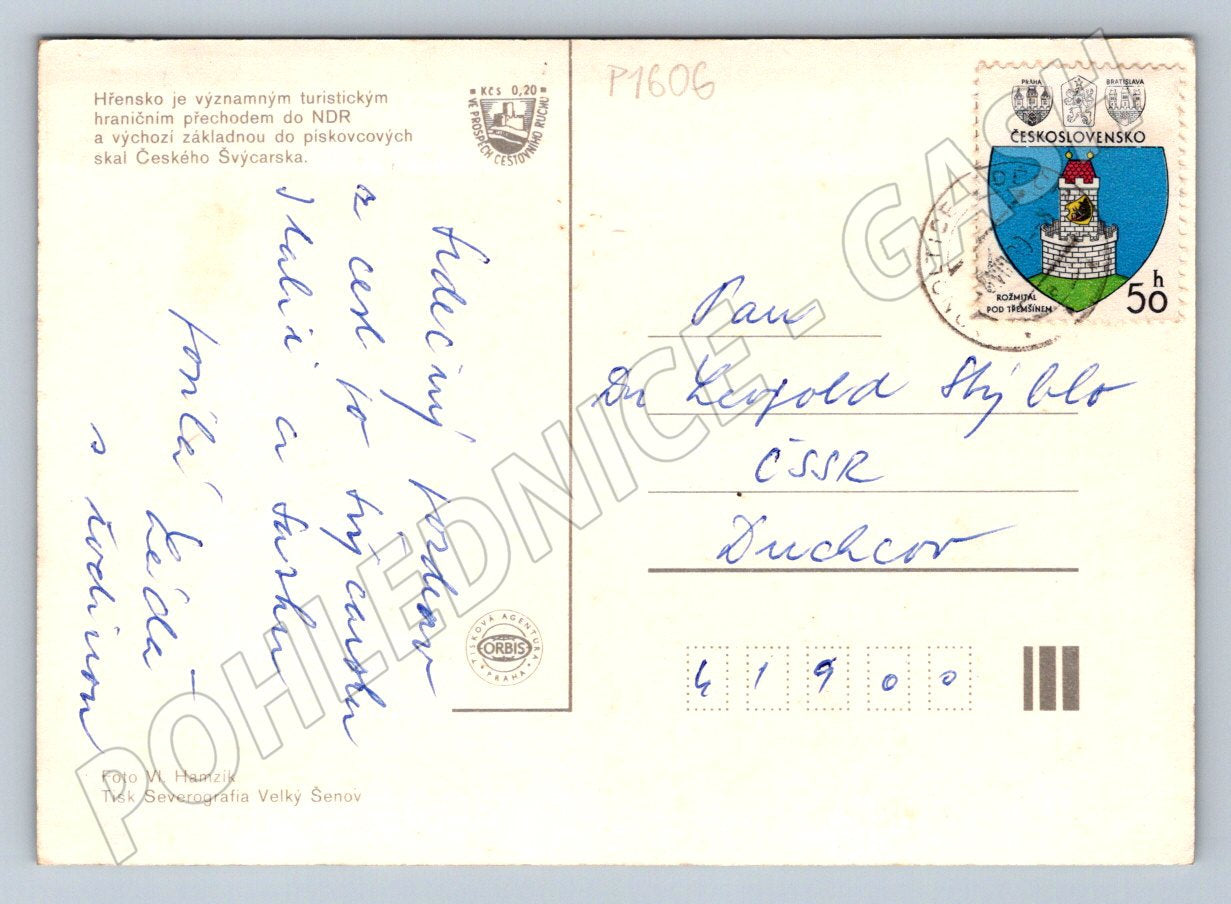 Hřensko je významným turistickým
hraničním přechodem do NDR
a výchozí základnou do pískovcových
skal Českého Švýcarska.
Kčs 0,20
VE PROSPĚCH CESTOVNÍHO RUCHU
P1606
PRAHA
BRATISLAVA
ČESKOSLOVENSKO
ROŽMITÁL
POD TŘEMŠÍNEM
50 h
Srdečný pozdrav
z cest po Švýcarsku
Itálii a
posílá
Léda –
s rodinou
Pan
Dr Leopold Stýblo
ČSSR
Duchcov
41900
TISKOVÁ AGENTURA
ORBIS
PRAHA
Foto Vl. Hamzík
Tisk Severografia Velký Šenov
POHLEDNICE - GASH